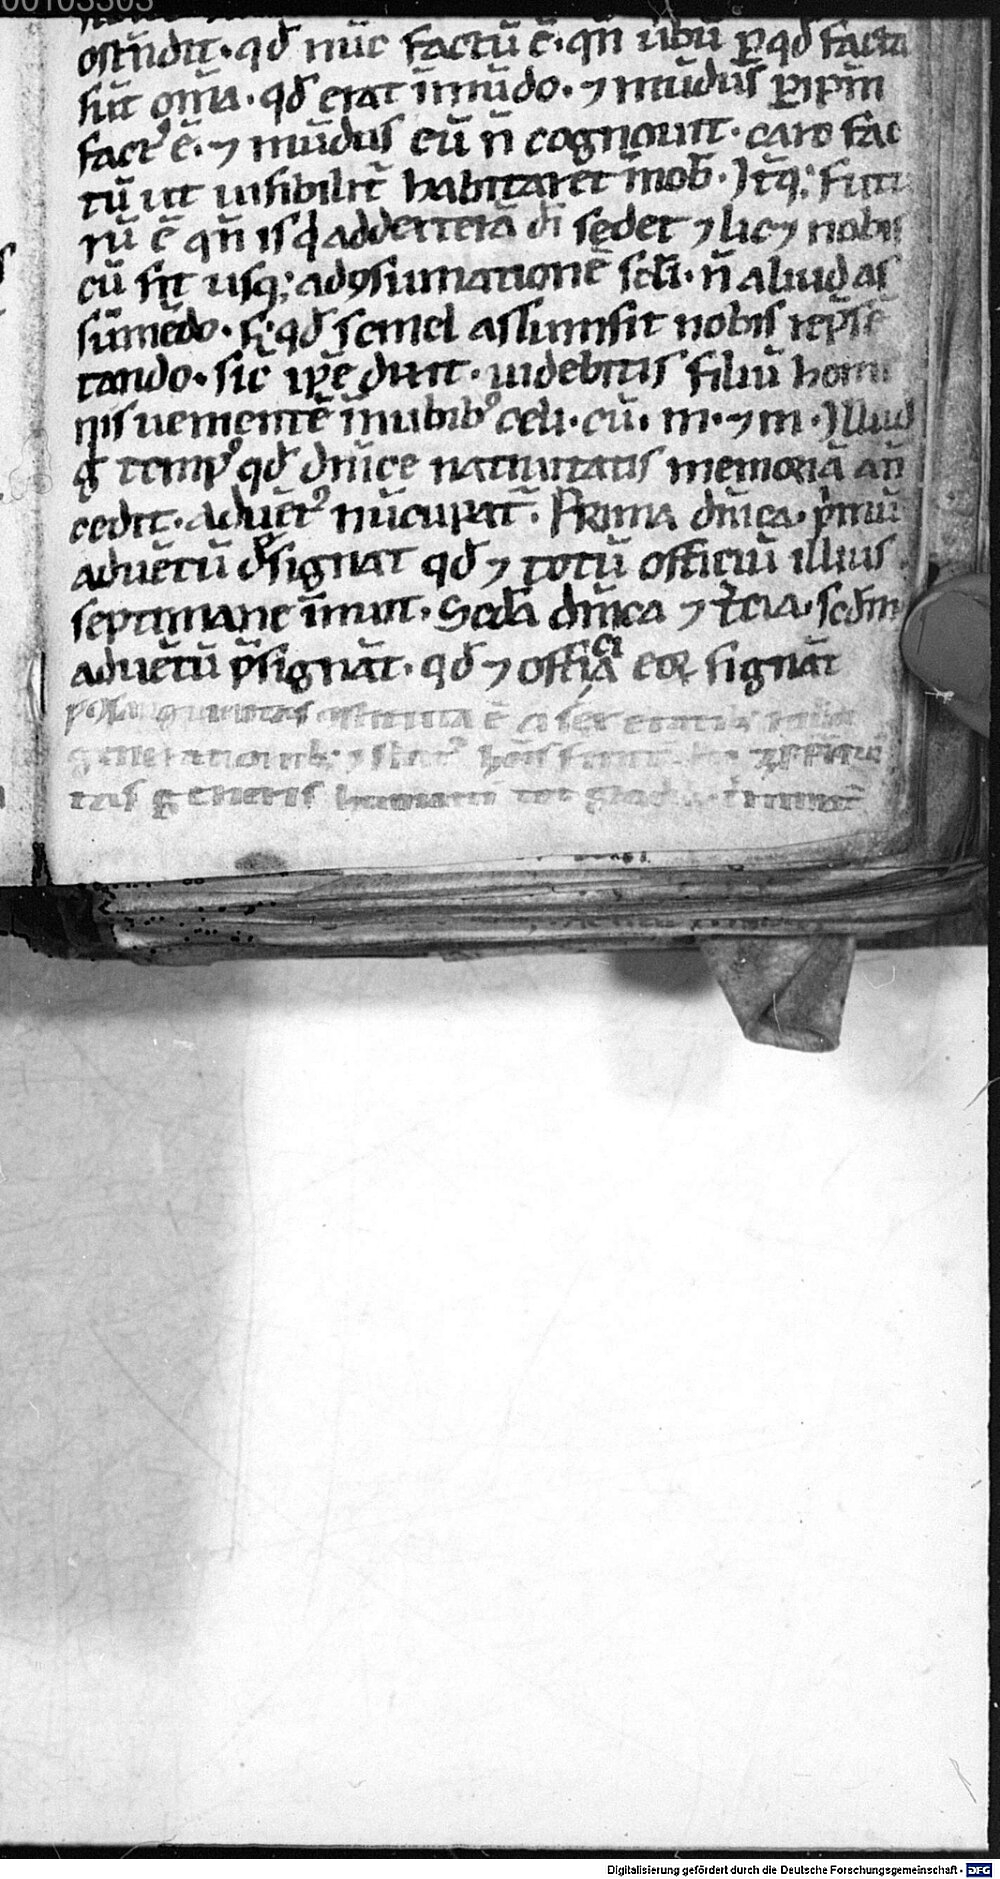 00103303
ostn̄dit. qd̄ nūc factū ē. qn̄ ubū ꝑqd̄ facta
sūt om̄a. qd̄ erat īmūdo. ⁊ mūdus ꝑip̄m
factꝰ ē. ⁊ mūdus eū n̄ cognouit. caro fac
tū ut uisibilit̄ habitaret īnob̄. Itēq; futu
rū ē qn̄ is q̄ ad dext̄erā dī sedet ⁊ lic⁊ nobis
cū sit usq; adꝯsumationē scl̄i. n̄ aliud as
sūmēdo. s; qd̄ semel assumsit nobis rep̄sē
tando. sic ip̄e dixit. uidebitis filiū homi
nis uenientē īnubibꝰ celi. cū. m. ⁊ m. Illud
g̊ tempꝰ qd̄ dn̄ice natiuitatis memoriā an̄
cedit. aduētꝰ nūcupat̄. Prima dn̄ica. p̄mū
aduētū d̄signat qd̄ ⁊ totū officiū illius
septimane īnuit. Scd̄a dn̄ica ⁊ t̄cia. scd̄m
aduētū p̄signāt. qd̄ ⁊ officia eoꝝ signāt
Digitalisierung gefördert durch die Deutsche Forschungsgemeinschaft - DFG